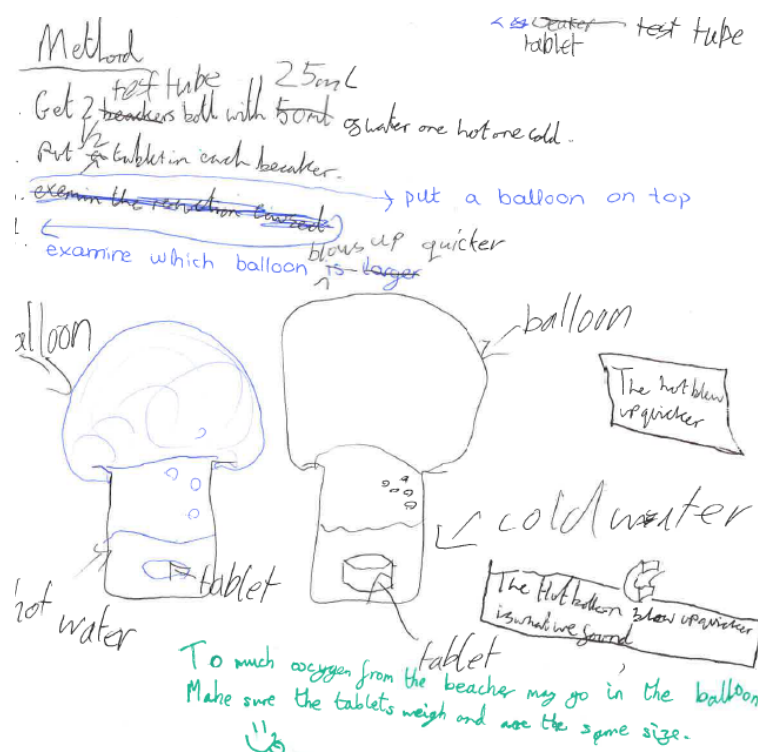 beaker test tube
tablet
Method
test tube 25mL
Get 2 beackers both with 50ml of water one hot one cold.
1/2
Put a tablet in each becaker.
examin the reduction
put a balloon on top
blows up quicker
examine which balloon is larger
alloon
balloon
The hot blew
up quicker
cold water
tablet
hot water
The Hot balloon blew up quicker
is what we found
tablet
To much oxcygen from the beacher may go in the balloon
Make sure the tablets weigh and are the same size.